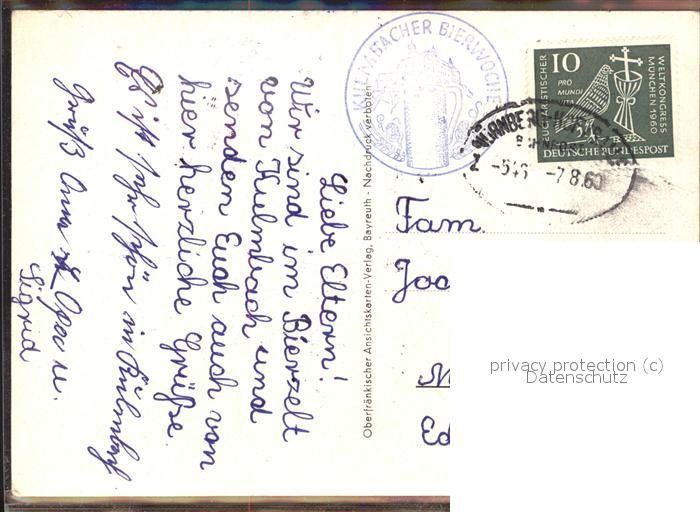 Liebe Eltern!
Wir sind im Bierzelt
von Kulmbach und
senden Euch auch von
hier herzliche Grüße.
Es ist sehr schön in Kulmbach
Gruß Oma & Opa u.
Sigrid
Oberfränkischer Ansichtskarten-Verlag, Bayreuth - Nachdruck verboten
KULMBACHER BIERWOCHE
10
PRO
MUNDI
VITA
EUCHARISTISCHER
WELTKONGRESS
MÜNCHEN 1960
DEUTSCHE BUNDESPOST
-7.8.60
Fam.
privacy protection (c)
Datenschutz